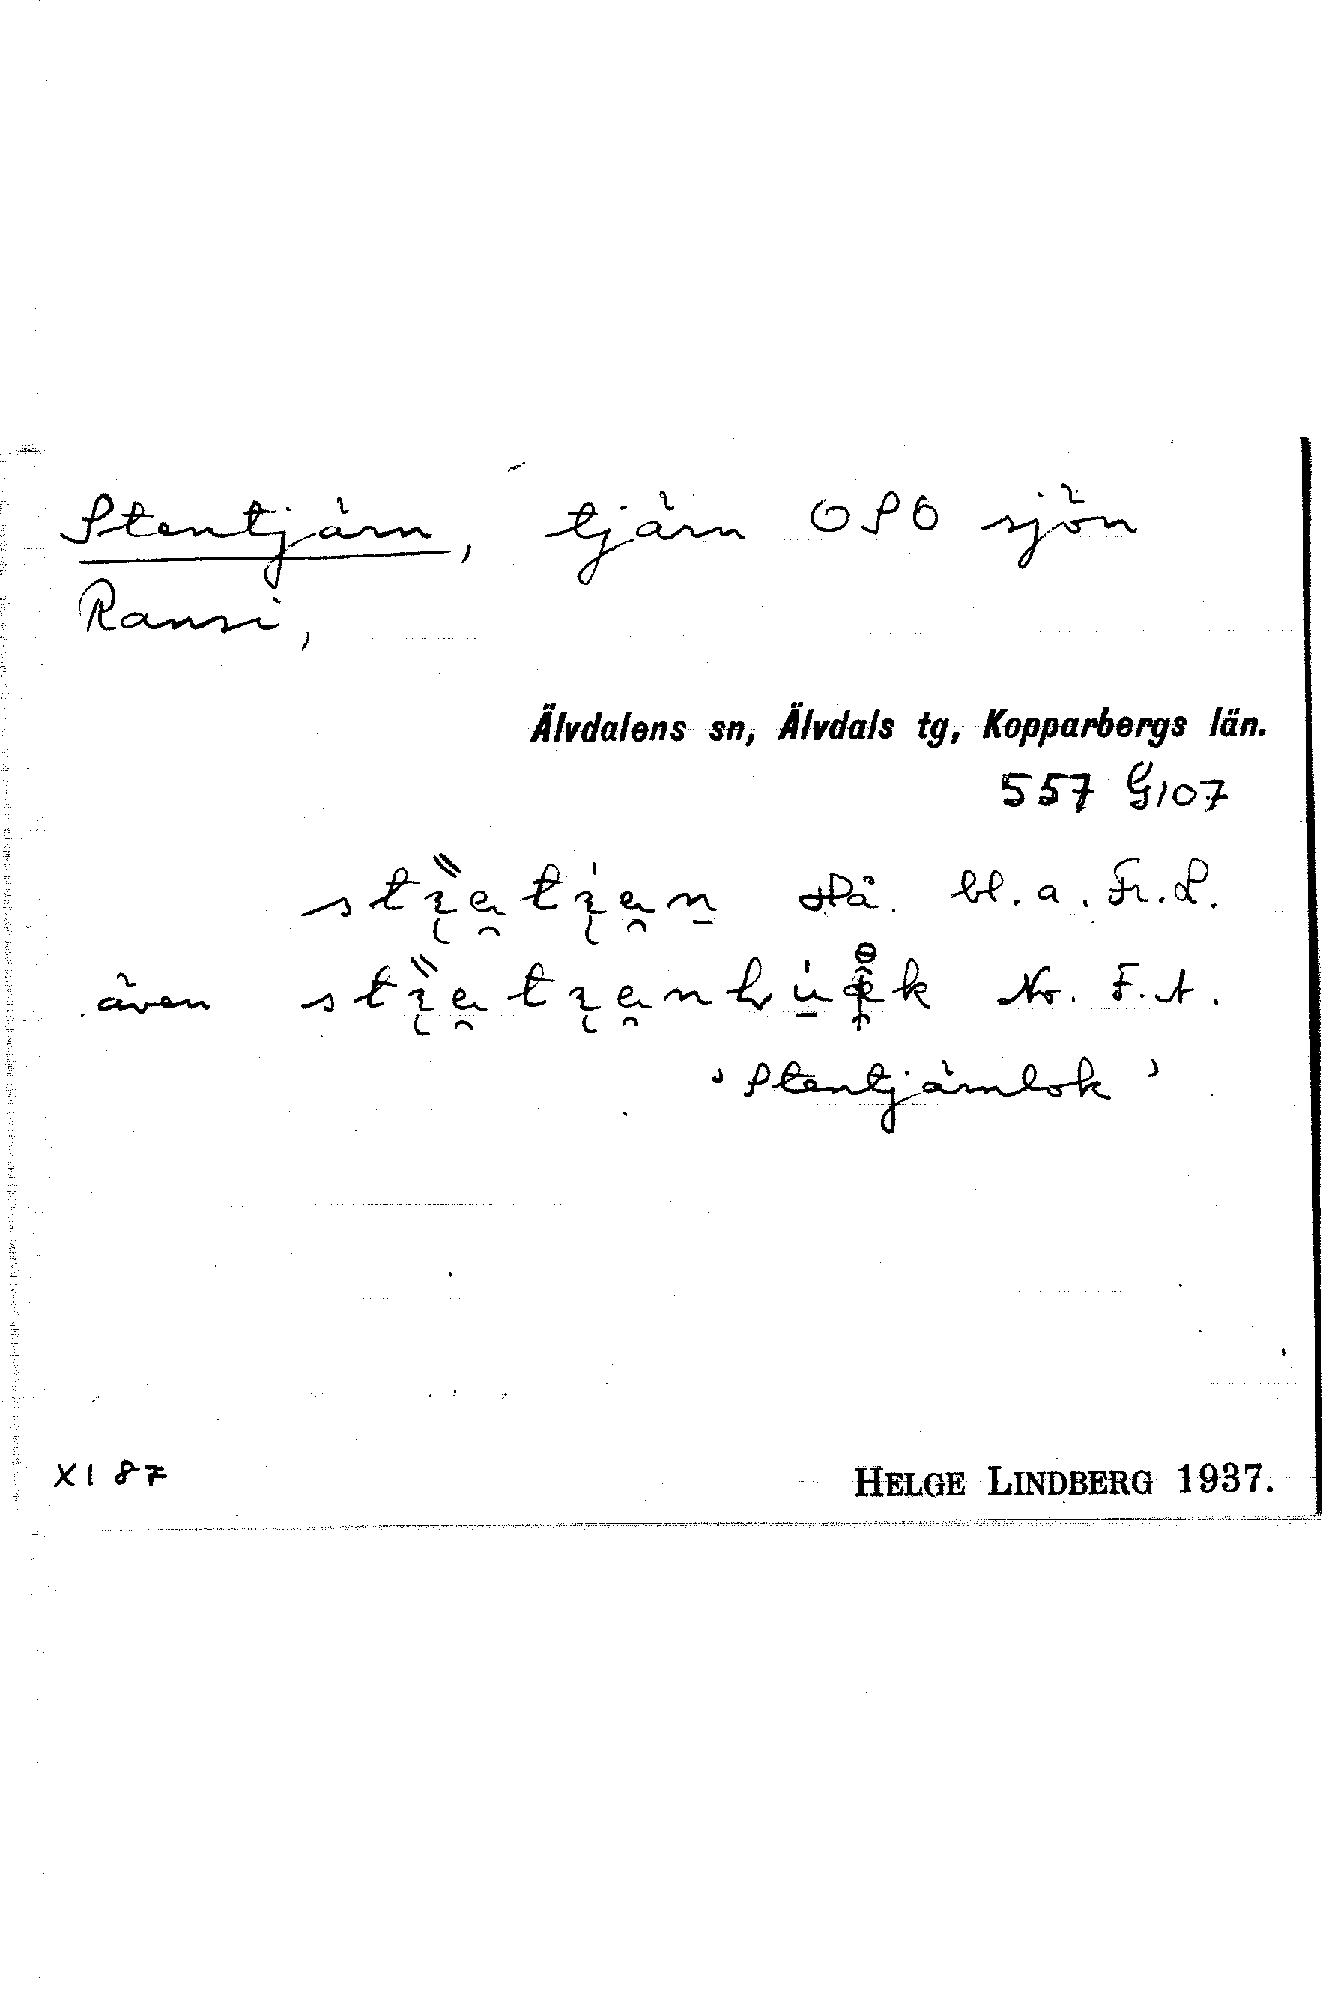 Stentjärn, tjärn OSO sjön
Ransi,
Älvdalens sn, Älvdals tg, Kopparbergs län.
557 G107
bl. a. Fr. L.
även No. F. A.
'Stentjärnlok'
XI 87
HELGE LINDBERG 1937.